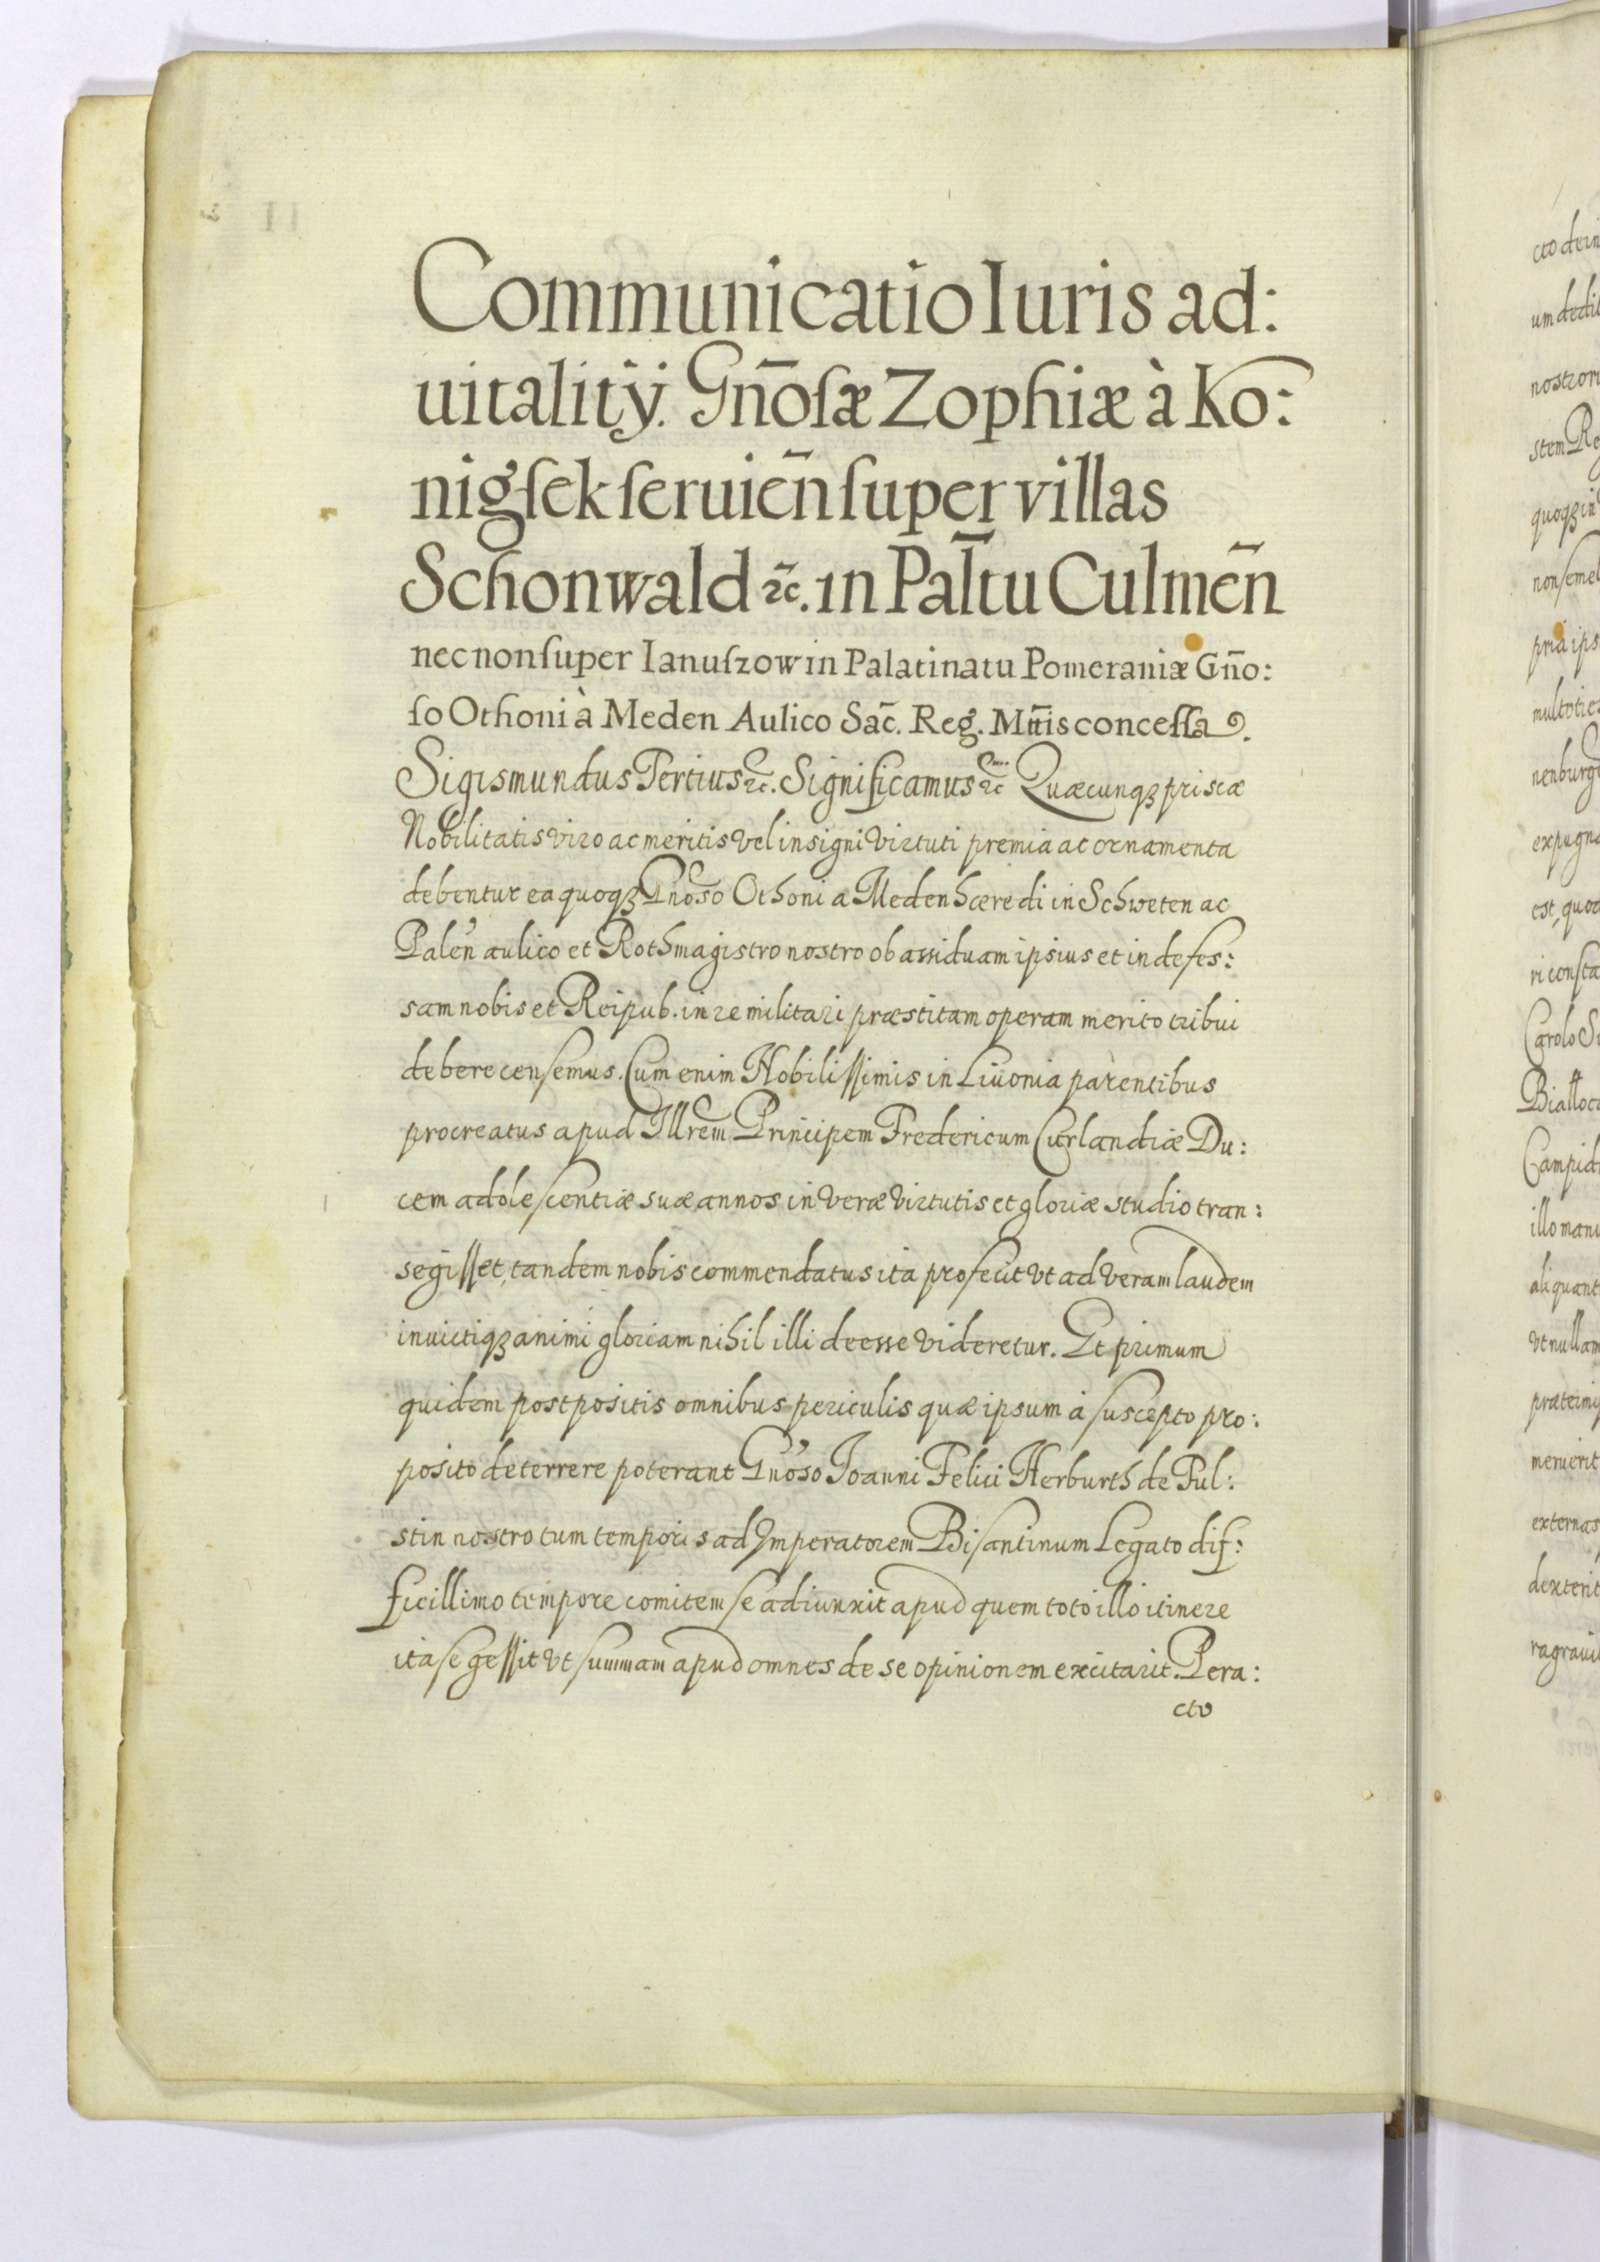 Communicatio Iuris ad:
uitalitÿ. Gn̄oſæ Zophiæ à Ko:
nigſek ſeruien̄ ſuper villas
Schonwald ꝛc̄. in Pal̄tu Culmen̄
nec non ſuper Ianuſzow in Palatinatu Pomeraniæ Gn̄o:
ſo Othoni à Meden Aulico Sac̄. Reg. Mt̄tis conceſſa.
Sigismundus Tertius ꝛc. Significamus ꝛc Quæcunqꝫ priscæ
Nobilitatis viro ac meritis vel insigni virtuti premia ac ornamenta
debentur ea quoqꝫ Gnoso Othoni a Meden hæredi in Schweten ac
Palen̄ aulico et Rothmagistro nostro ob assiduam ipsius et indefes:
sam nobis et Reipub. in re militari præstitam operam merito tribui
debere censemus. Cum enim Nobilissimis in Liuonia parentibus
procreatus apud Illrem Principem Fredericum Curlandiæ Du:
cem adolescentiæ suæ annos in veræ virtutis et gloriæ studio tran:
segisset, tandem nobis commendatus ita profecit vt ad veram laudem
inuictiqꝫ animi gloriam nihil illi deesse videretur. Et primum
quidem postpositis omnibus periculis quæ ipsum à suscepto pro:
posito deterrere poterant Gnoso Joanni Felici Herburth de Ful:
stin nostro tum temporis ad Imperatorem Bisantinum Legato dif:
ficillimo tempore comitem se adiunxit apud quem toto illo itinere
ita se gessit vt summam apud omnes de se opinionem excitarit. Pera:
cto
cto dein
um dedit
nostror
stem Re
quoqꝫ in
non semel
pria ips
multoties
nenburg
expugna
est, quoc
ri consta
Carolo S
Campid
illo manu
aliquant
vt nullam
meruerit
externas
dexterit
ragraui